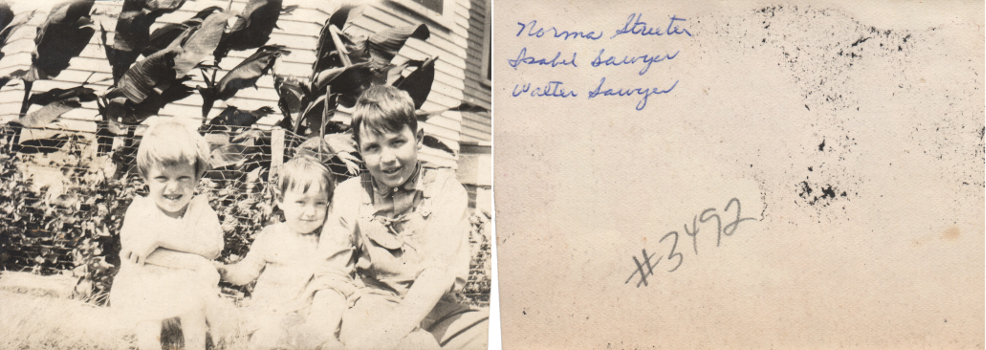 Norma Streeter
Isabel Sawyer
Walter Sawyer
#3492